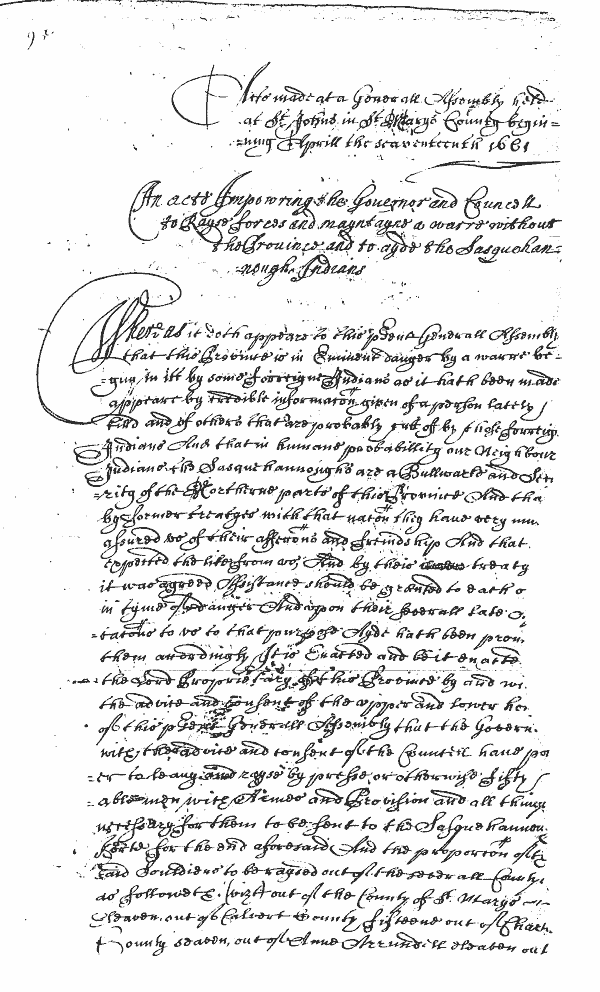 Acts made at a Generall Assembly held
at St Johns in St Marys County begin=
=ning Aprill the seaventeenth 1661
An acte Impowring the Governor and Councell
to Rayse forces and mayntayne a warre without
the Province and to ayde the Sasquehan=
=nough Indians
Whereas it doth appeare to this psent Generall Assembly
that this Province is in Eminent danger by a warre be=
=gun in itt by some forreigne Indians as it hath been made
appeare by credible informacon given of a person lately
kild and of others that are probably cutt off by those forreign
Indians And that in humane probabillity our Neighbour
Indians the Sasquehannoughs are a Bullwarke and Secu
=rity of the Northerne parts of this Province And tha
by former treatyes with that nacon they have very mu
assured us of their affecons and freindship And that
expected the like from us And by their treaty
it was agreed Assistance should be granted to each o
in tyme of danger And upon their severall late
=tacons to us to that purpose Ayde hath been prom
them accordingly It is Enacted and be it enacted
the Lord Proprietary of this Province by and wi
the advice and consent of the upper and lower ho
of this psent Generall Assembly that the Govern
with the advice and consent of the Councell have po
=er to leavy and rayse by presse or otherwise fifty
=able men with Armes and Provision and all things
necessary for them to be sent to the Sasquehannou
forte for the end aforesaid And the proporcon of th
said Souldiers to be raysed out of the severall County
as followeth. (vizt) out of the County of St Marys
eleaven, out of Calvert County fifteene out of Charl
County seaven, out of Anne Arrundell eleaven out